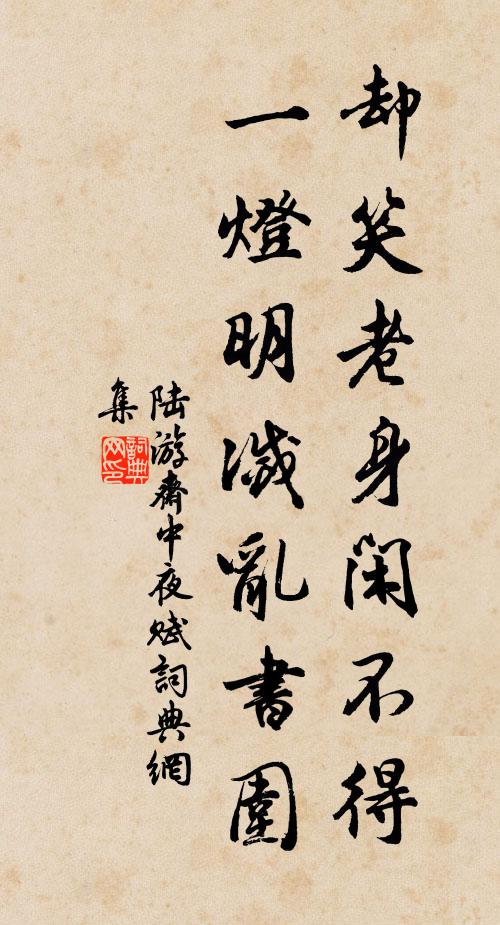 却笑老身閑不得
一燈明滅亂書圍
陸游齋中夜賦詞典網
集
詞典
网印